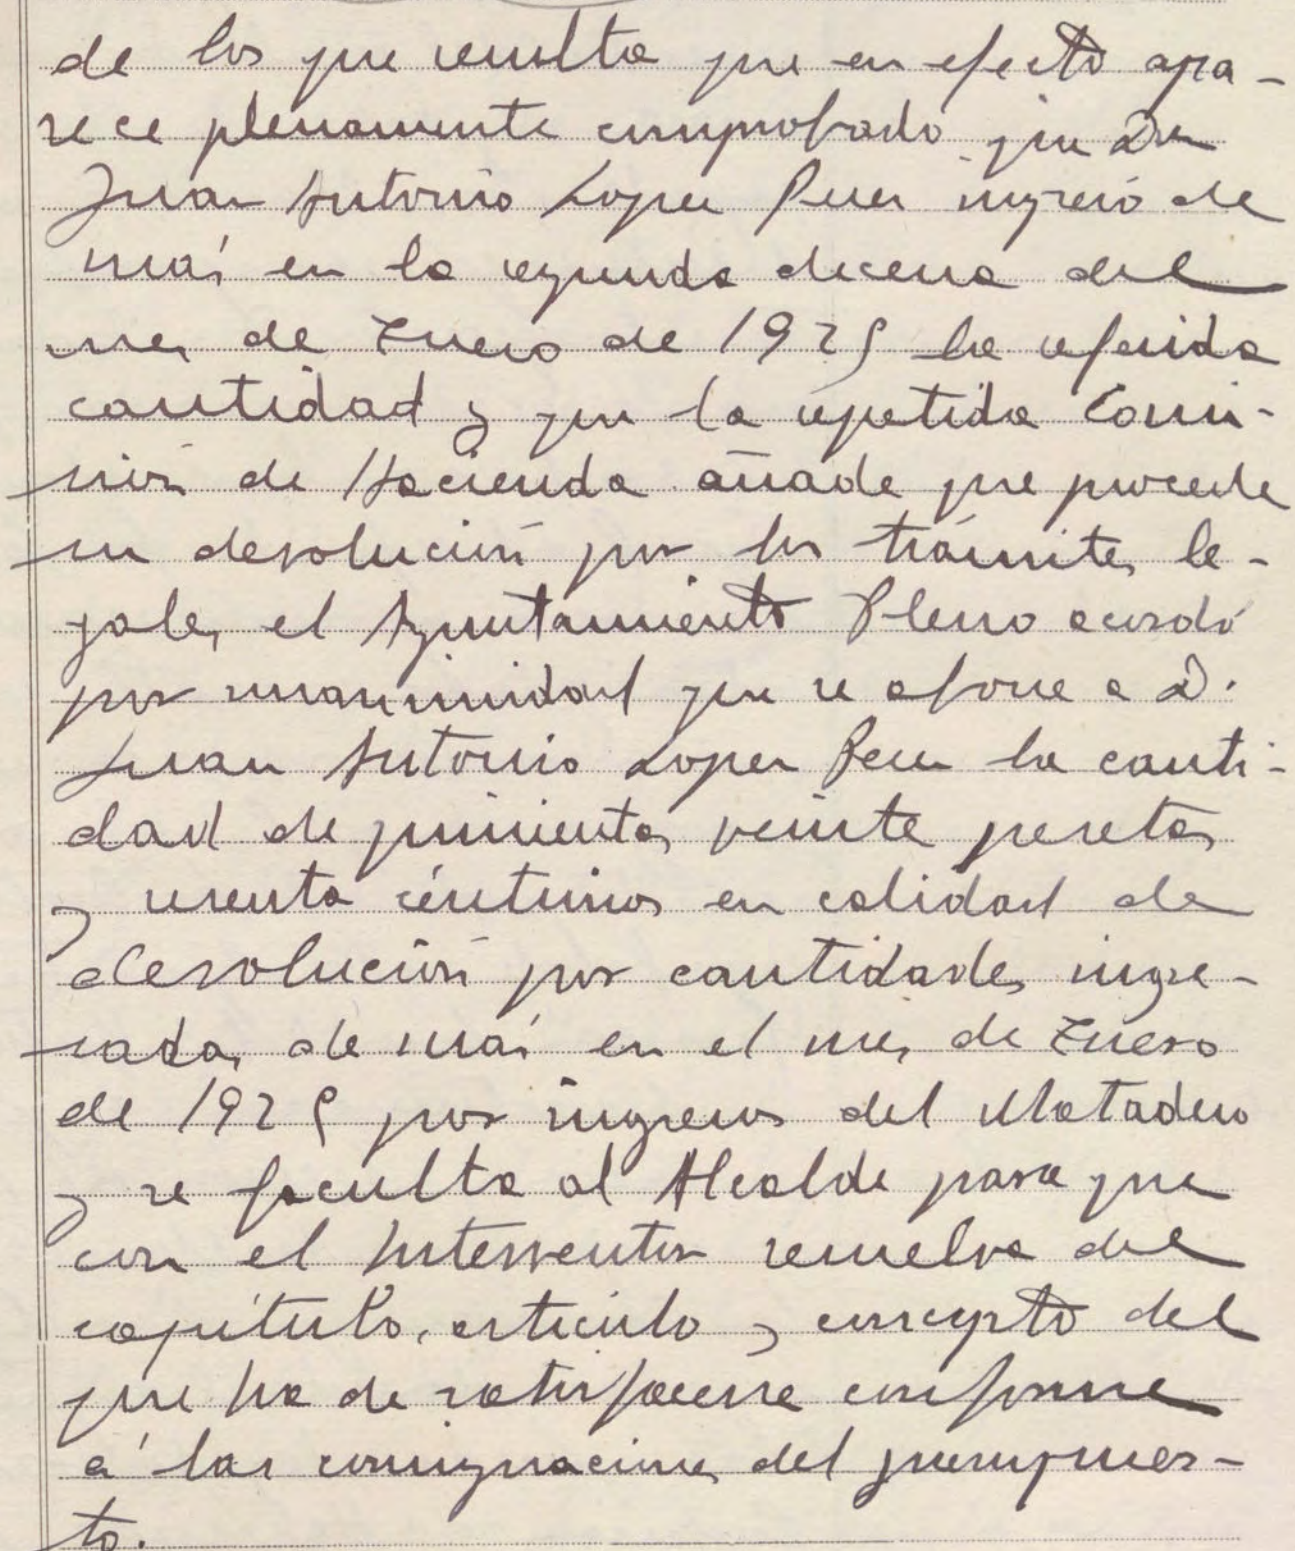 de los que resulta que en efecto apa-
rece plenamente comprobado que Don
Juan Antonio Lopez Perez ingresó de
más en la segunda decena del
mes de Enero de 1925 la referida
cantidad y que la repetida Comi-
sion de Hacienda añade que procede
su devolución por los trámites le-
gales, el Ayuntamiento Pleno acordó
por unanimidad que se abone a D.
Juan Antonio Lopez Perez la canti-
dad de quinientas veinte pesetas
y sesenta céntimos en calidad de
devolución por cantidades ingre-
sadas de más en el mes de Enero
de 1925 por ingresos del Matadero
y se faculta al Alcalde para que
con el Interventor resuelva del
capítulo, articulo y concepto del
que ha de satisfacerse conforme
á las consignaciones del presupues-
to.